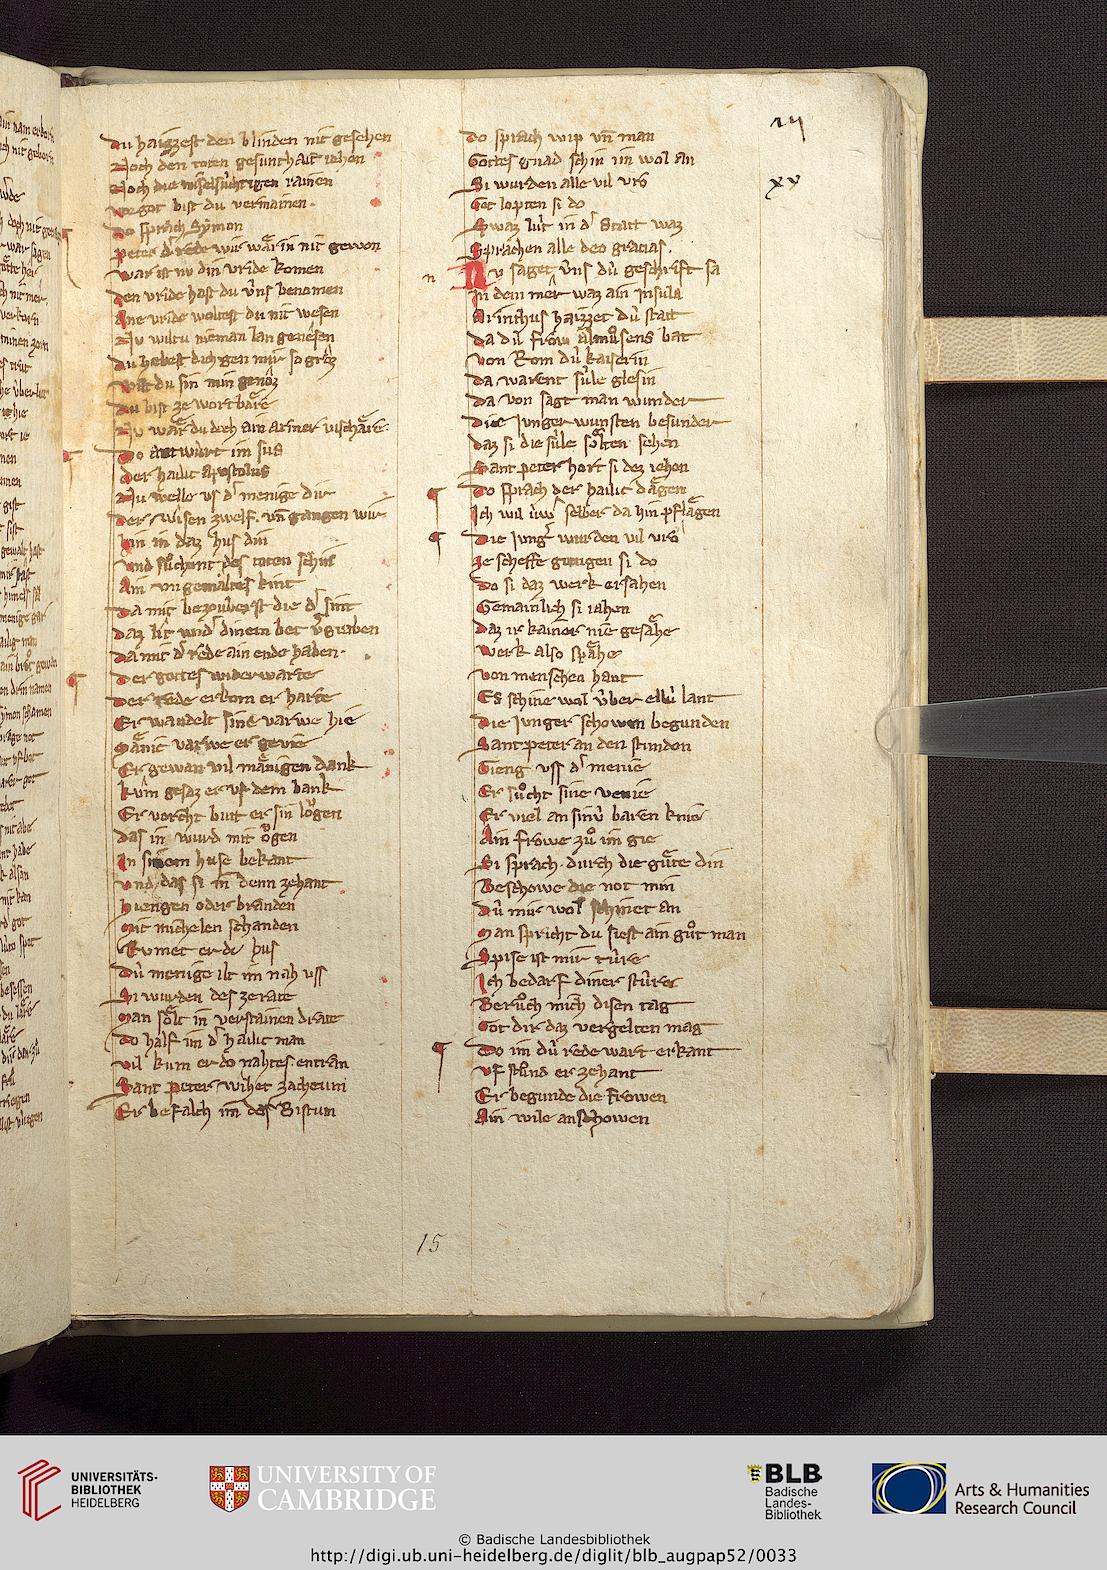 du haizzest den blinden nit gesehen
Noch den toten gesunthait iehen
Noch die miselsúchtigen rainen
vor got bist du vermainen
Do sprach Symon
peter dͬ rede wir wärin nit gewon
war ist nv din vride komen
den vride hast du v́ns benomen
Ane vride woltest du nit wesen
Nv wiltu nieman lan genesen
du hebest dich gen mir so groz
wilt du sin min genoz
Du bist ze wortbäre
Nv wär du doch ain armer vischäre
Do antwúrt im sus
der hailic apostolus
Nu welle vs dͬ menige dir
der wisen zwelf vn̄ gangen wir
hin in daz hus din
und sůchent des toten schin
Ain vngemaltes kint
da mit bezouberst die dͬ sint
daz lit vndͬ dinem bet vͬgraben
da mit dͬ rede ain ende haben
Der gottes widerwarte
der rede erkom er harte
Er wandelt sine varwe hie
Mänic varwe er gevie
Er gewan vil mänigen dank
kům gesaz er vf dem bank
Er vorcht hiitt er sin lögen
das in wurd mit ögen
In sinem huse bekant
vnd das si in denn zehant
hiengen oder branden
mit michelen schanden
Rvmet er dc hus
Dú menige ilt im nah vss
Si wurden des zerate
Man sölt in verstainen drate
Do half im dͬ hailic man
vil kum er do nahtes entran
Sant peter wihet zacheum
Er befalch im des Bistum
15
do sprach wip vn̄ man
Gottes gnad schin im wol an
Si wurden alle vil vro
Got lopten si do
Swaz lút in dͬ Statt waz
Sprachen alle deo gracias
n
Nv saget v́ns dú geschrift sa
In dem mer waz ain Insula
Arinthus haizzet dú statt
da dú frow almůsens bat
von Rom dú kaiserin
da warent súle glesin
da von sagt man wunder
die Junger wunsten besunder
daz si die súle sölten sehen
Sant peter hort si dez iehen
Do sprach der hailic dägen
Ich wil úwͬ selber da hin pflägen
Die Jungͬ wurden vil vro
ze scheffe giengen si do
do si daz werk ersahen
Gemainlich si iahen
Daz ir kainer nie gesähe
werk also spähe
von menschen hant
Es schine wol úber ellú lant
die Junger schowen begunden
Sant peter an den stunden
Gieng vss dͬ menie
Er sůcht sine venie
Er viel an sinú baren knie
Ain frowe zů im gie
Si sprach durch die güte din
Beschowe die not min
Dú mir wol schinet an
Man spricht du siest ain gůt man
Spise ist mir túre
Ich bedarf diner stúre
Berůch mich disen tag
Got dir daz vergelten mag
Do im dú rede wart erkant
vf stůnd er zehant
Er begunde die frowen
Ain wile anschowen
xv
UNIVERSITÄTS-
BIBLIOTHEK
HEIDELBERG
UNIVERSITY OF
CAMBRIDGE
BLB
Badische
Landes-
Bibliothek
Arts & Humanities
Research Council
© Badische Landesbibliothek
http://digi.ub.uni-heidelberg.de/diglit/blb_augpap52/0033